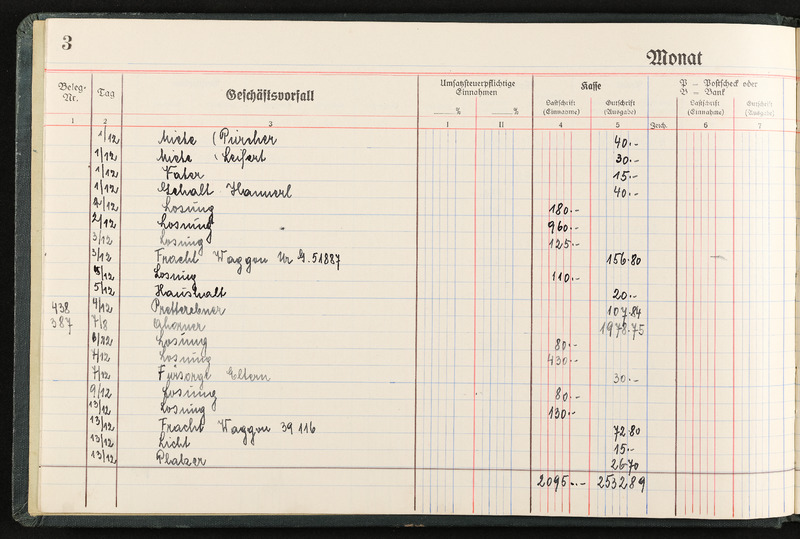 3
Monat
Beleg-Nr.
Tag
Geschäftsvorfall
Umsatzsteuerpflichtige Einnahmen
% %
Kasse
Lastschrift (Einnahme)
Gutschrift (Ausgabe)
Zeich.
P – Postscheck oder
B – Bank
Lastschrift (Einnahme)
Gutschrift (Ausgabe)
1 2 3 I II 4 5 6 7
1/12 Miete (Pürcher 40.-
1/12 Miete ( Leifert 30.-
1/12 Vater 15.-
1/12 Gehalt Hannerl 40.-
2/12 Losung 180.-
2/12 Losung 960.-
3/12 Losung 125.-
3/12 Fracht Waggon Nr G.51887 156.80
5/12 Losung 110.-
5/12 Haushalt 20.-
438 4/12 Pretterebner 107.84
387 7/8 1978.75
6/12 Losung 80.-
7/12 Losung 430.-
7/12 Fürsorge Eltern 30.-
9/12 Losung 80.-
13/12 Losung 130.-
13/12 Fracht Waggon 39 116 72.80
13/12 Licht 15.-
13/12 Platzer 26.70
2095.- 2532.89